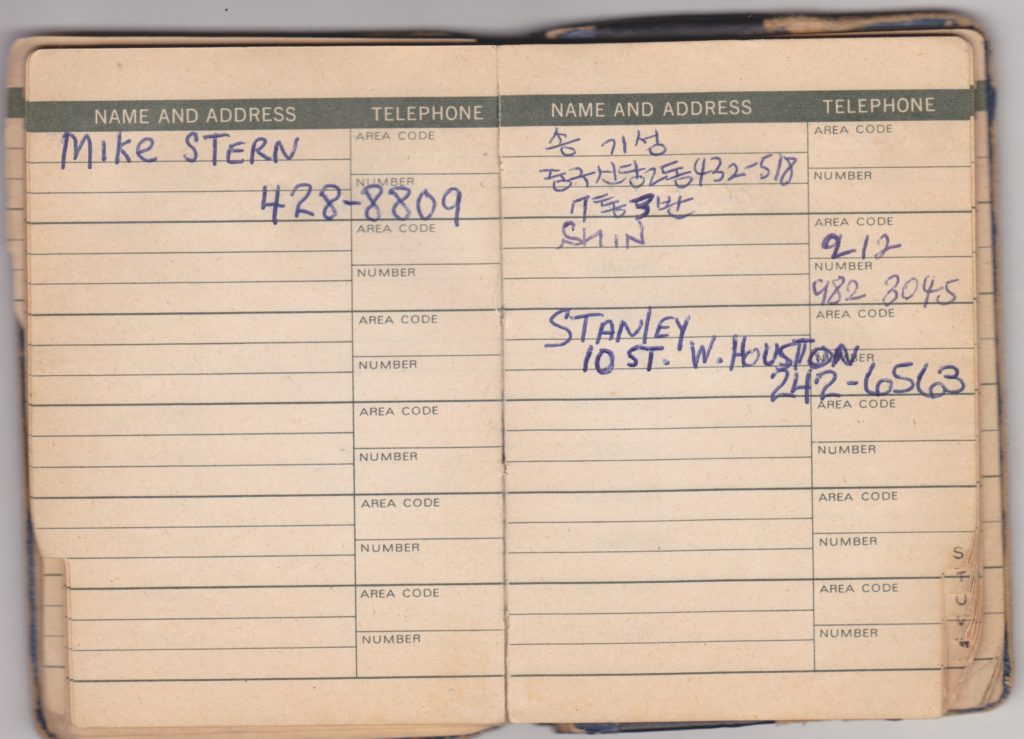 NAME AND ADDRESS TELEPHONE
Mike STERN
AREA CODE
NUMBER
428-8809
AREA CODE
NUMBER
AREA CODE
NUMBER
AREA CODE
NUMBER
AREA CODE
NUMBER
AREA CODE
NUMBER
NAME AND ADDRESS TELEPHONE
송 기성
AREA CODE
중구신당2동432-518
NUMBER
7통3반
SHIN
AREA CODE
212
NUMBER
982 3045
STANLEY
AREA CODE
10 ST. W. HOUSTON
NUMBER
242-6563
AREA CODE
NUMBER
AREA CODE
NUMBER
AREA CODE
NUMBER
S
T
U